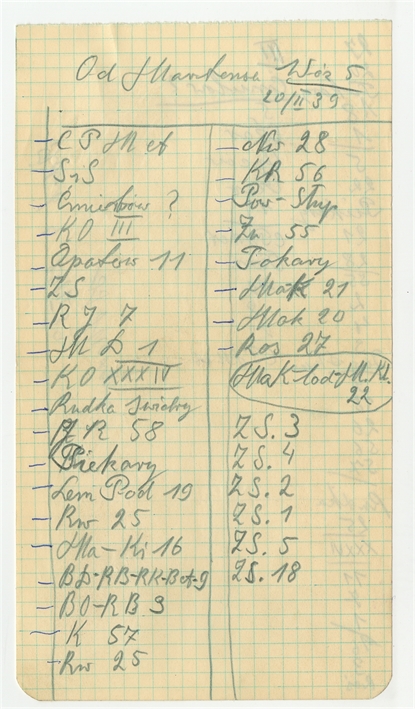 Od Martensa Wóz 5
20/II 39
C P M et
S2S
Ćmielów ?
KO III
Opatów 11
ZS
R J 7
M D 1
KO XXXIV
Rudka Świdry
R 58
Piekary
Lem Pod 19
Rw 25
Ma-Ki 16
BD-RB-RK-Bot-9
BO-RB 3
K 57
Rw 25
Nw 28
KR 56
Pow-Stup
Zn 55
Tokary
MaK 21
Mok 20
Ros 27
MaK-lod-M.Kl.
22
ZS. 3
ZS. 4
ZS. 2
ZS. 1
ZS. 5
ZS. 18